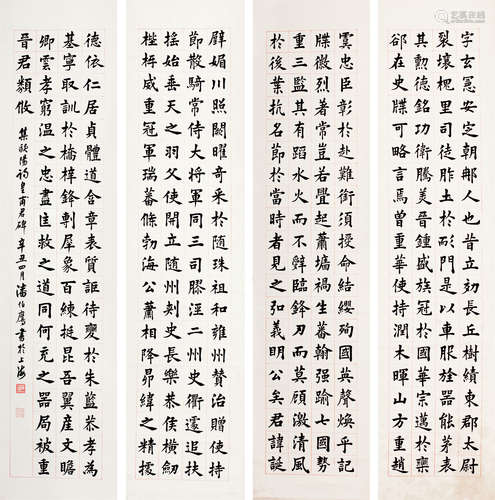 字玄冕安定朝那人也昔立効長丘樹績東郡太尉
裂壤槐里司徒胙土於耏門是以車服旌器能茅表
其勲德銘功衛騰美晉鍾盛族冠於國華宗邁於欒
郤在史牒可略言焉曾重華使持潤木暉山方重趙
虞忠臣彰於赴難銜須授命結纓殉國英聲煥乎記
牒徽烈著常豈若釁起蕭墻禍生蕃翰强踰七國勢
重三監其有蹈水火而不辭臨鋒刃而莫顧激清風
於後葉抗名節於當時者見之弘義明公矣君諱誕
辟媚川照闕曜奇采於隨珠祖和雍州贊治贈使持
節散騎常侍大將軍同三司膠涇二州史衢遽追扶
搖始垂天之羽父使開立隨州刾史長樂恭侯橫劔
桎梏威重冠軍瑞蕃條勃海公蕭相降昴緯之精據
德依仁居貞體道含章表質詎待變於朱藍恭孝為
基寧取訓於橋梓鋒剸犀象百練挺昆吾翼崖文瞻
卿雲孝窮溫之忠盡匡救之道同何充之器局被重
晉君類攸 集歐陽詢皇甫君碑辛丑四月潘伯鷹書於上海